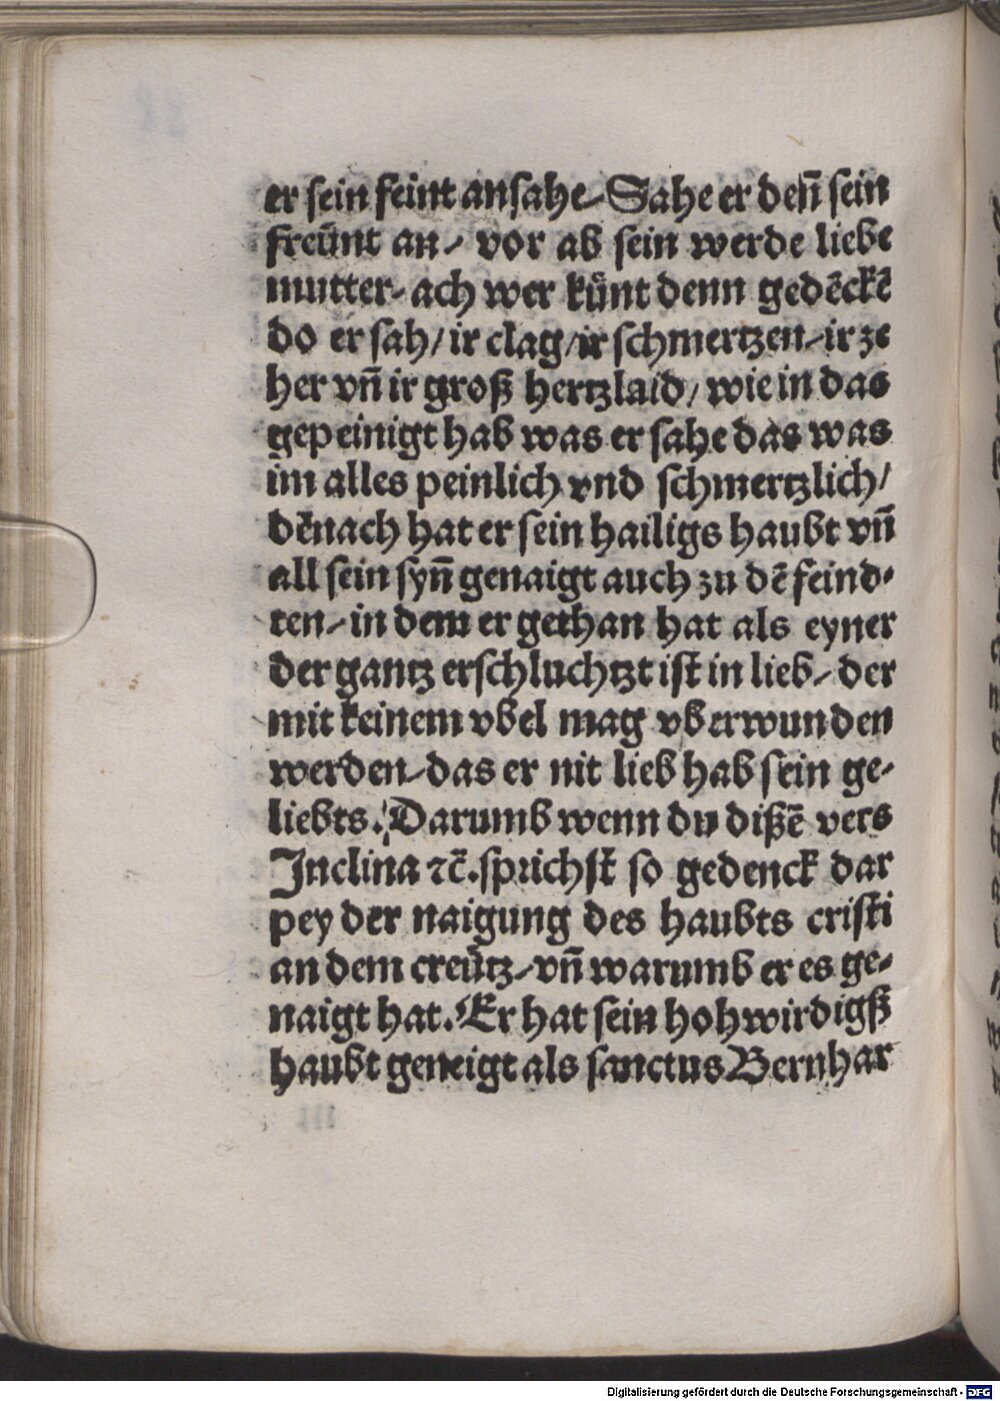 er sein feint ansahe/ Sahe er deñ sein
freünt an/ vor ab sein werde liebe
mutter/ ach wer künt denn gedēckē
do er sah/ ir clag/ ir schmertzen/ ir ze
her vñ ir groß hertzlaid/ wie in das
gepeinigt hab was er sahe das was
im alles peinlich vnd schmertzlich/
dēnach hat er sein hailigs haubt vñ
all sein syñ genaigt auch zu dē feind⸗
ten/ in dem er gethan hat als eyner
der gantz erschluchtzt ist in lieb/ der
mit keinem vbel mag vberwunden
werden/ das er nit lieb hab sein ge⸗
liebts. Darumb wenn du dißē vers
Inclina ⁊c̄. sprichst so gedenck dar
pey der naigung des haubts cristi
an dem creütz/ vñ warumb er es ge⸗
naigt hat. Er hat sein hohwirdigß
haubt geneigt als sanctus Bernhar
Digitalisierung gefördert durch die Deutsche Forschungsgemeinschaft - DFG